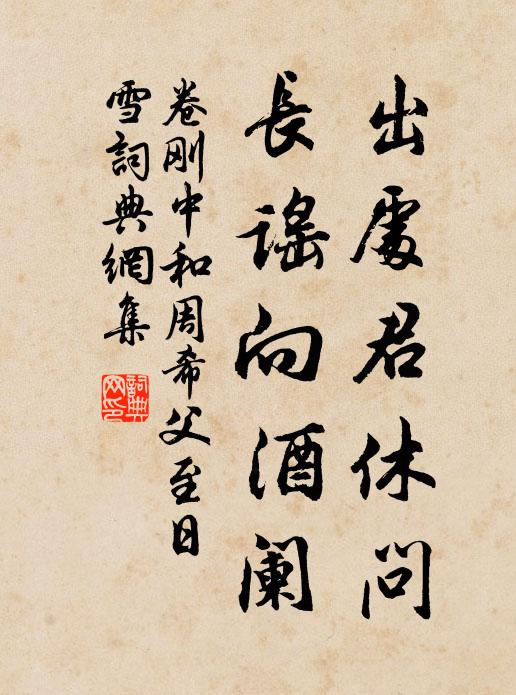 出處君休問
長謠向酒阑
卷刚中和周希父至日
雪詞典網集
詞典
网印